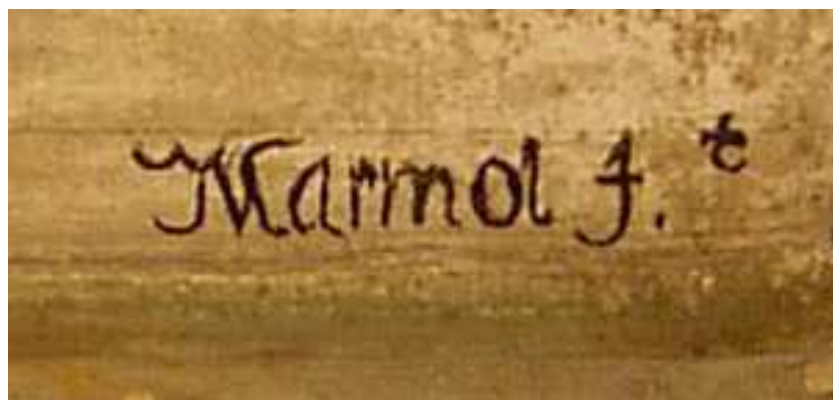 Marmol f.ᵗ